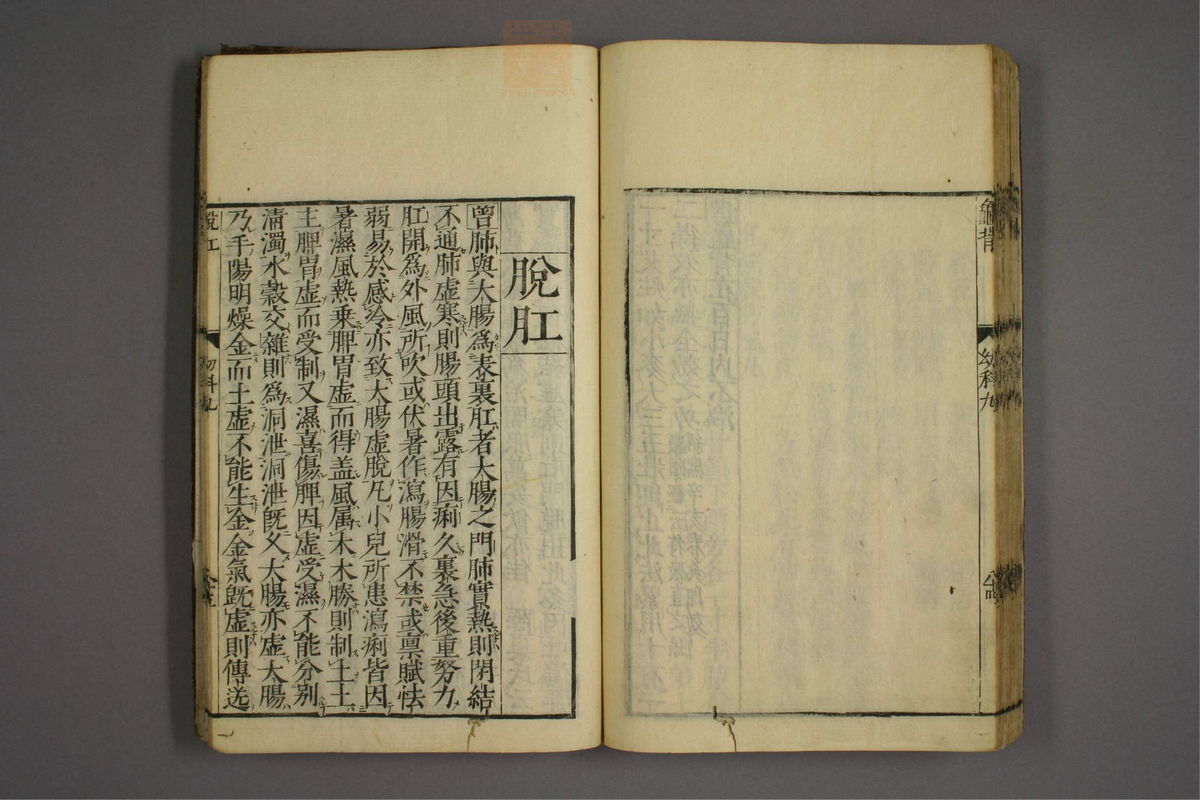 龜背
幼科九
脫肛
曾肺與大腸爲表裏肛者大腸之門肺實熱則閉結
不通肺虛寒則腸頭出露有因痢久裏急後重努力
肛開爲外風所吹或伏暑作瀉腸滑不禁或禀賦怯
弱易於感冷亦致大腸虛脫凡小兒所患瀉痢皆因
暑濕風熱乗脾胃虛而得盖風属木木勝則制土土
主脾胃虛而受制又濕喜傷脾因虛受濕不能分别
淸濁水榖交雜則爲洞泄洞泄旣久大腸亦虛大腸
乃手陽明燥金而土虛不能生金金氣旣虛則傳送
脫肛
幼科九